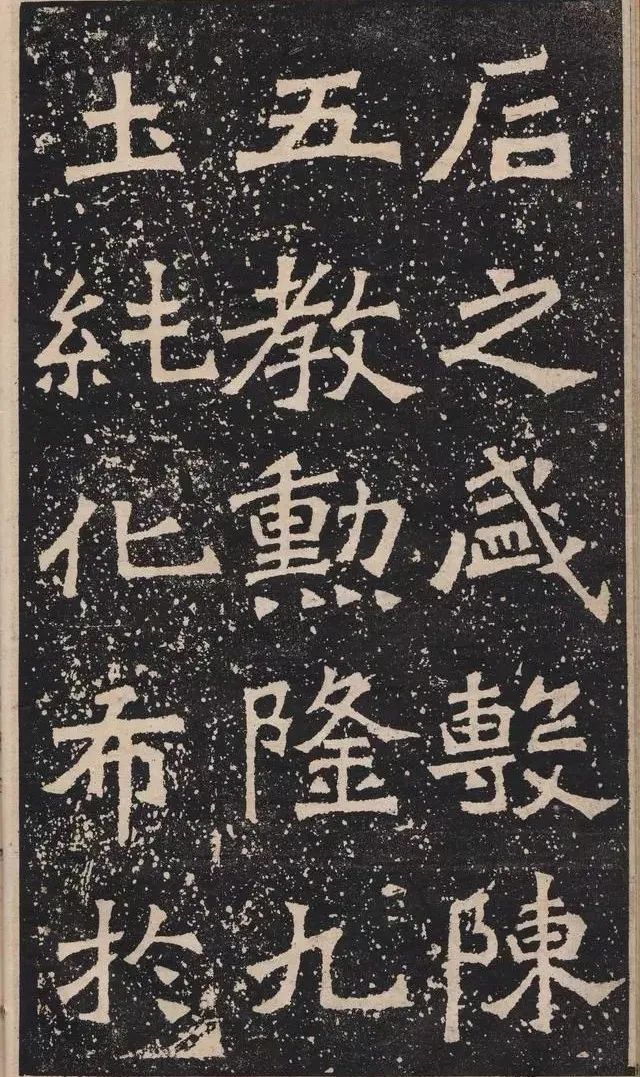 后之盛敷陳
五教勳隆九
土純化布於